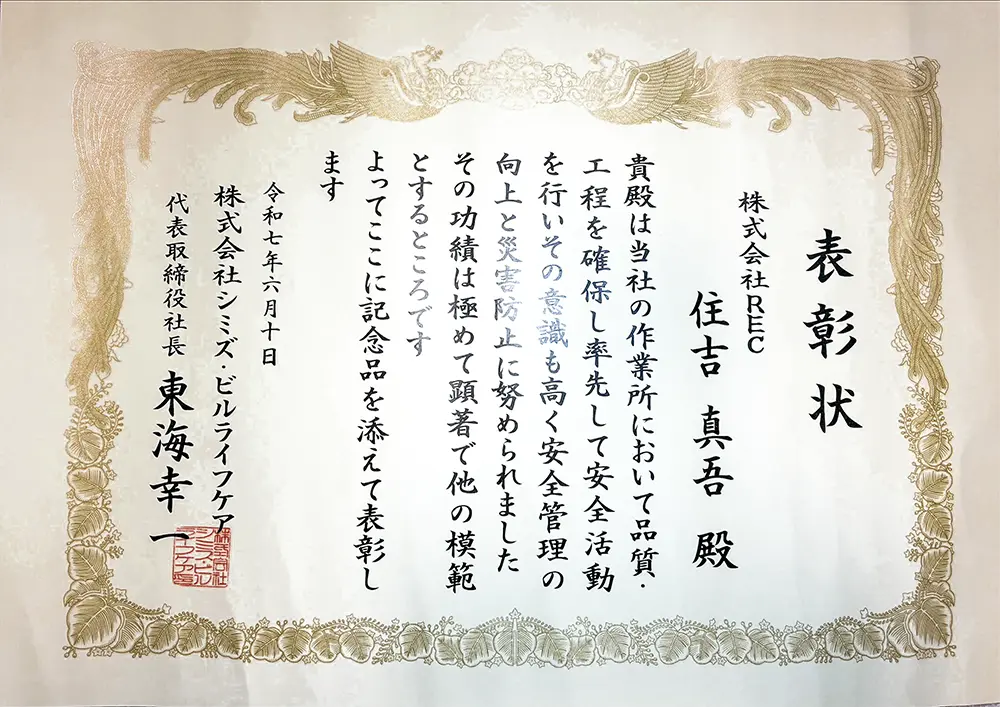 表彰状
株式会社REC
住吉 真吾 殿
貴殿は当社の作業所において品質・
工程を確保し率先して安全活動
を行いその意識も高く安全管理の
向上と災害防止に努められました
その功績は極めて顕著で他の模範
とするところです
よってここに記念品を添えて表彰し
ます
令和七年六月十日
株式会社シミズ・ビルライフケア
代表取締役社長 東海幸一